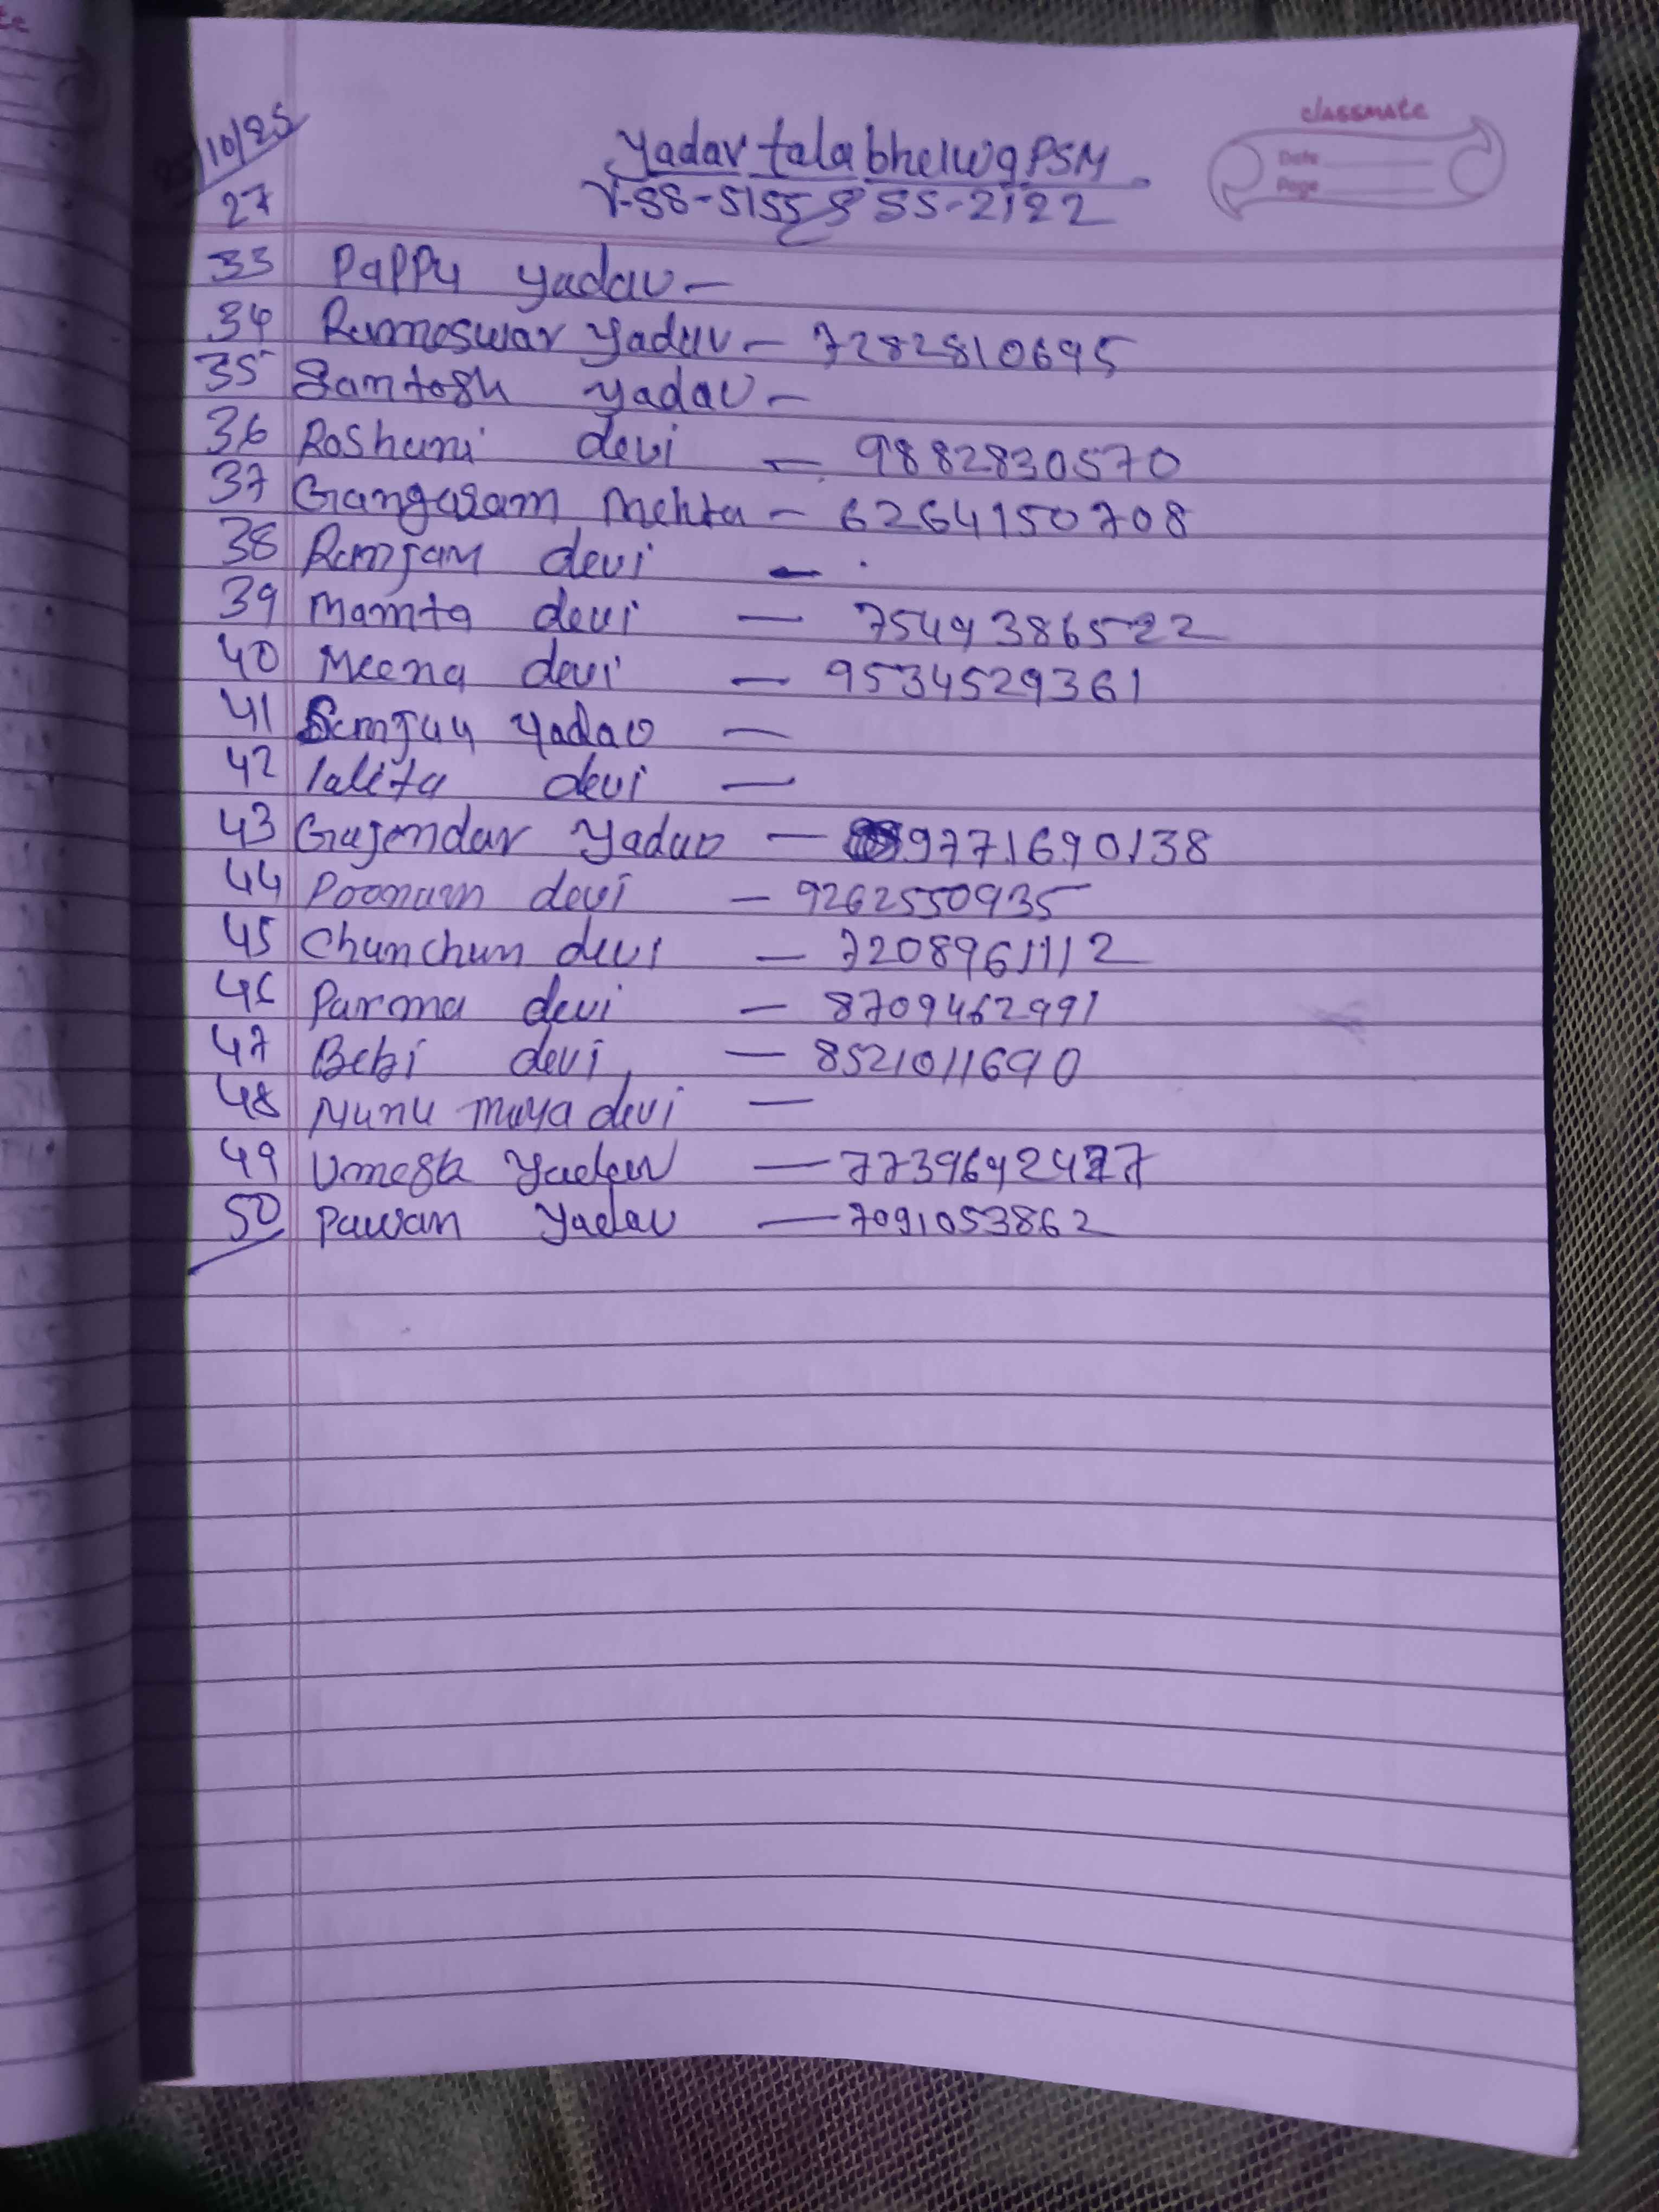 classmate
Date
Page
10/25
27
Yadav tola bhelwa PSM
V-SS-5155 & SS-2122
33 Pappy yadav -
34 Rameswar yadav - 7282810695
35 Samtosh yadav -
36 Roshani devi - 9882830570
37 Gangaram Mehta - 6264150708
38 Ramjam devi -
39 Mamta devi - 7549386522
40 Meena devi - 9534529361
41 Samjay yadav -
42 lalita devi -
43 Gajendar Yadav - 9771690138
44 Poonam devi - 9262550935
45 Chunchun devi - 7208961112
46 Parma devi - 8709462991
47 Bebi devi - 8521011690
48 Nunu maya devi -
49 Umesh Yadav -
50 Pawan Yadav - 7091053862